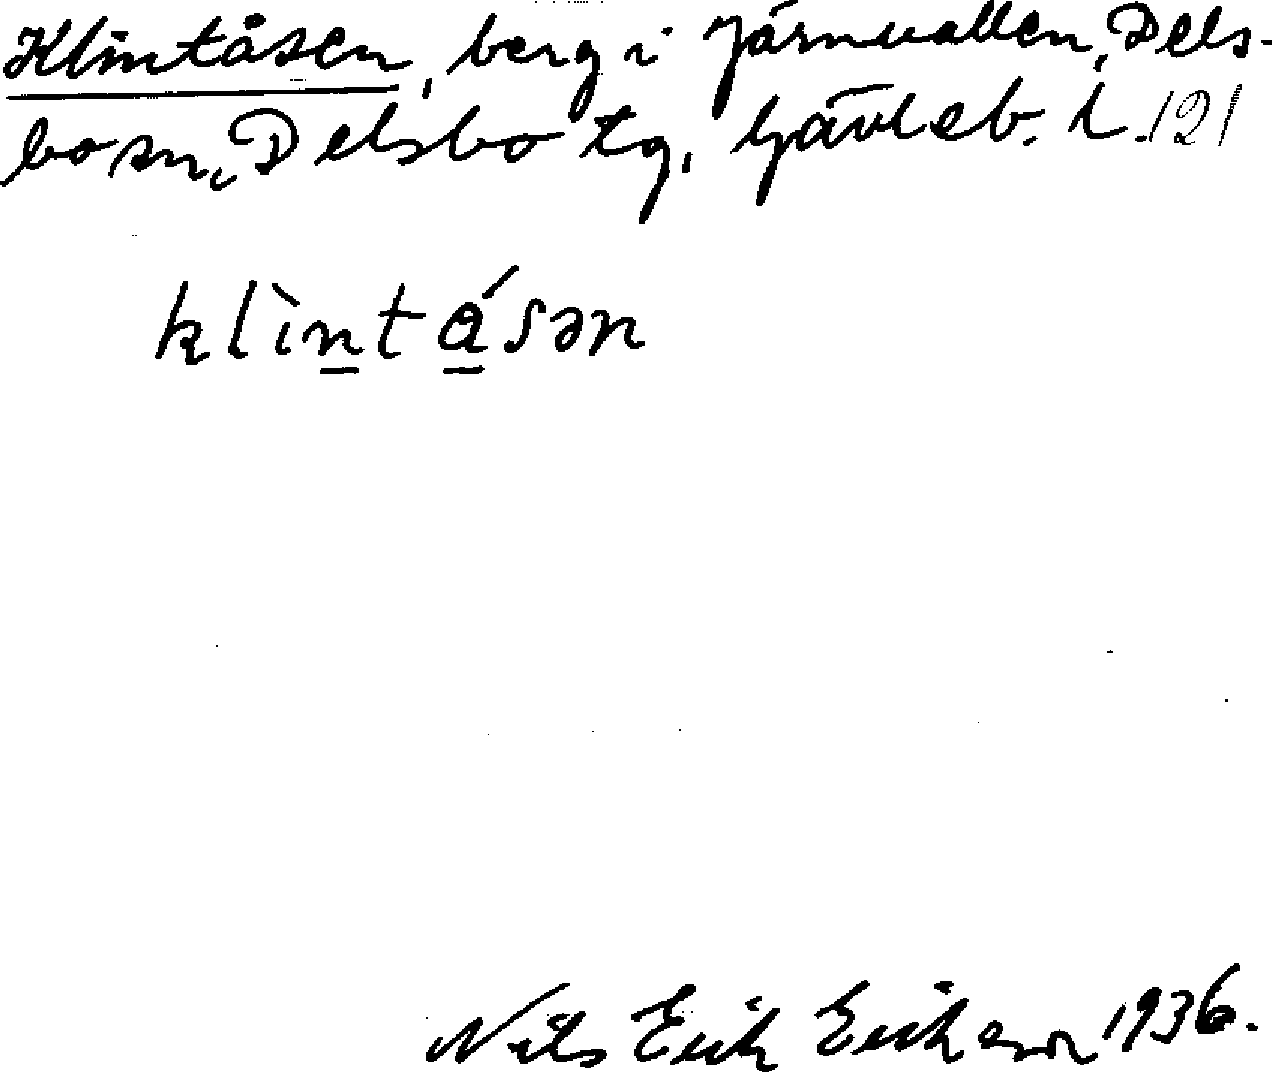 Klintåsen, berg i Järnvallen, Dels-
bo sn, Delsbo tg, Gävleb. l. 121
klìntǻsən
Nils Erik Erikson 1936.